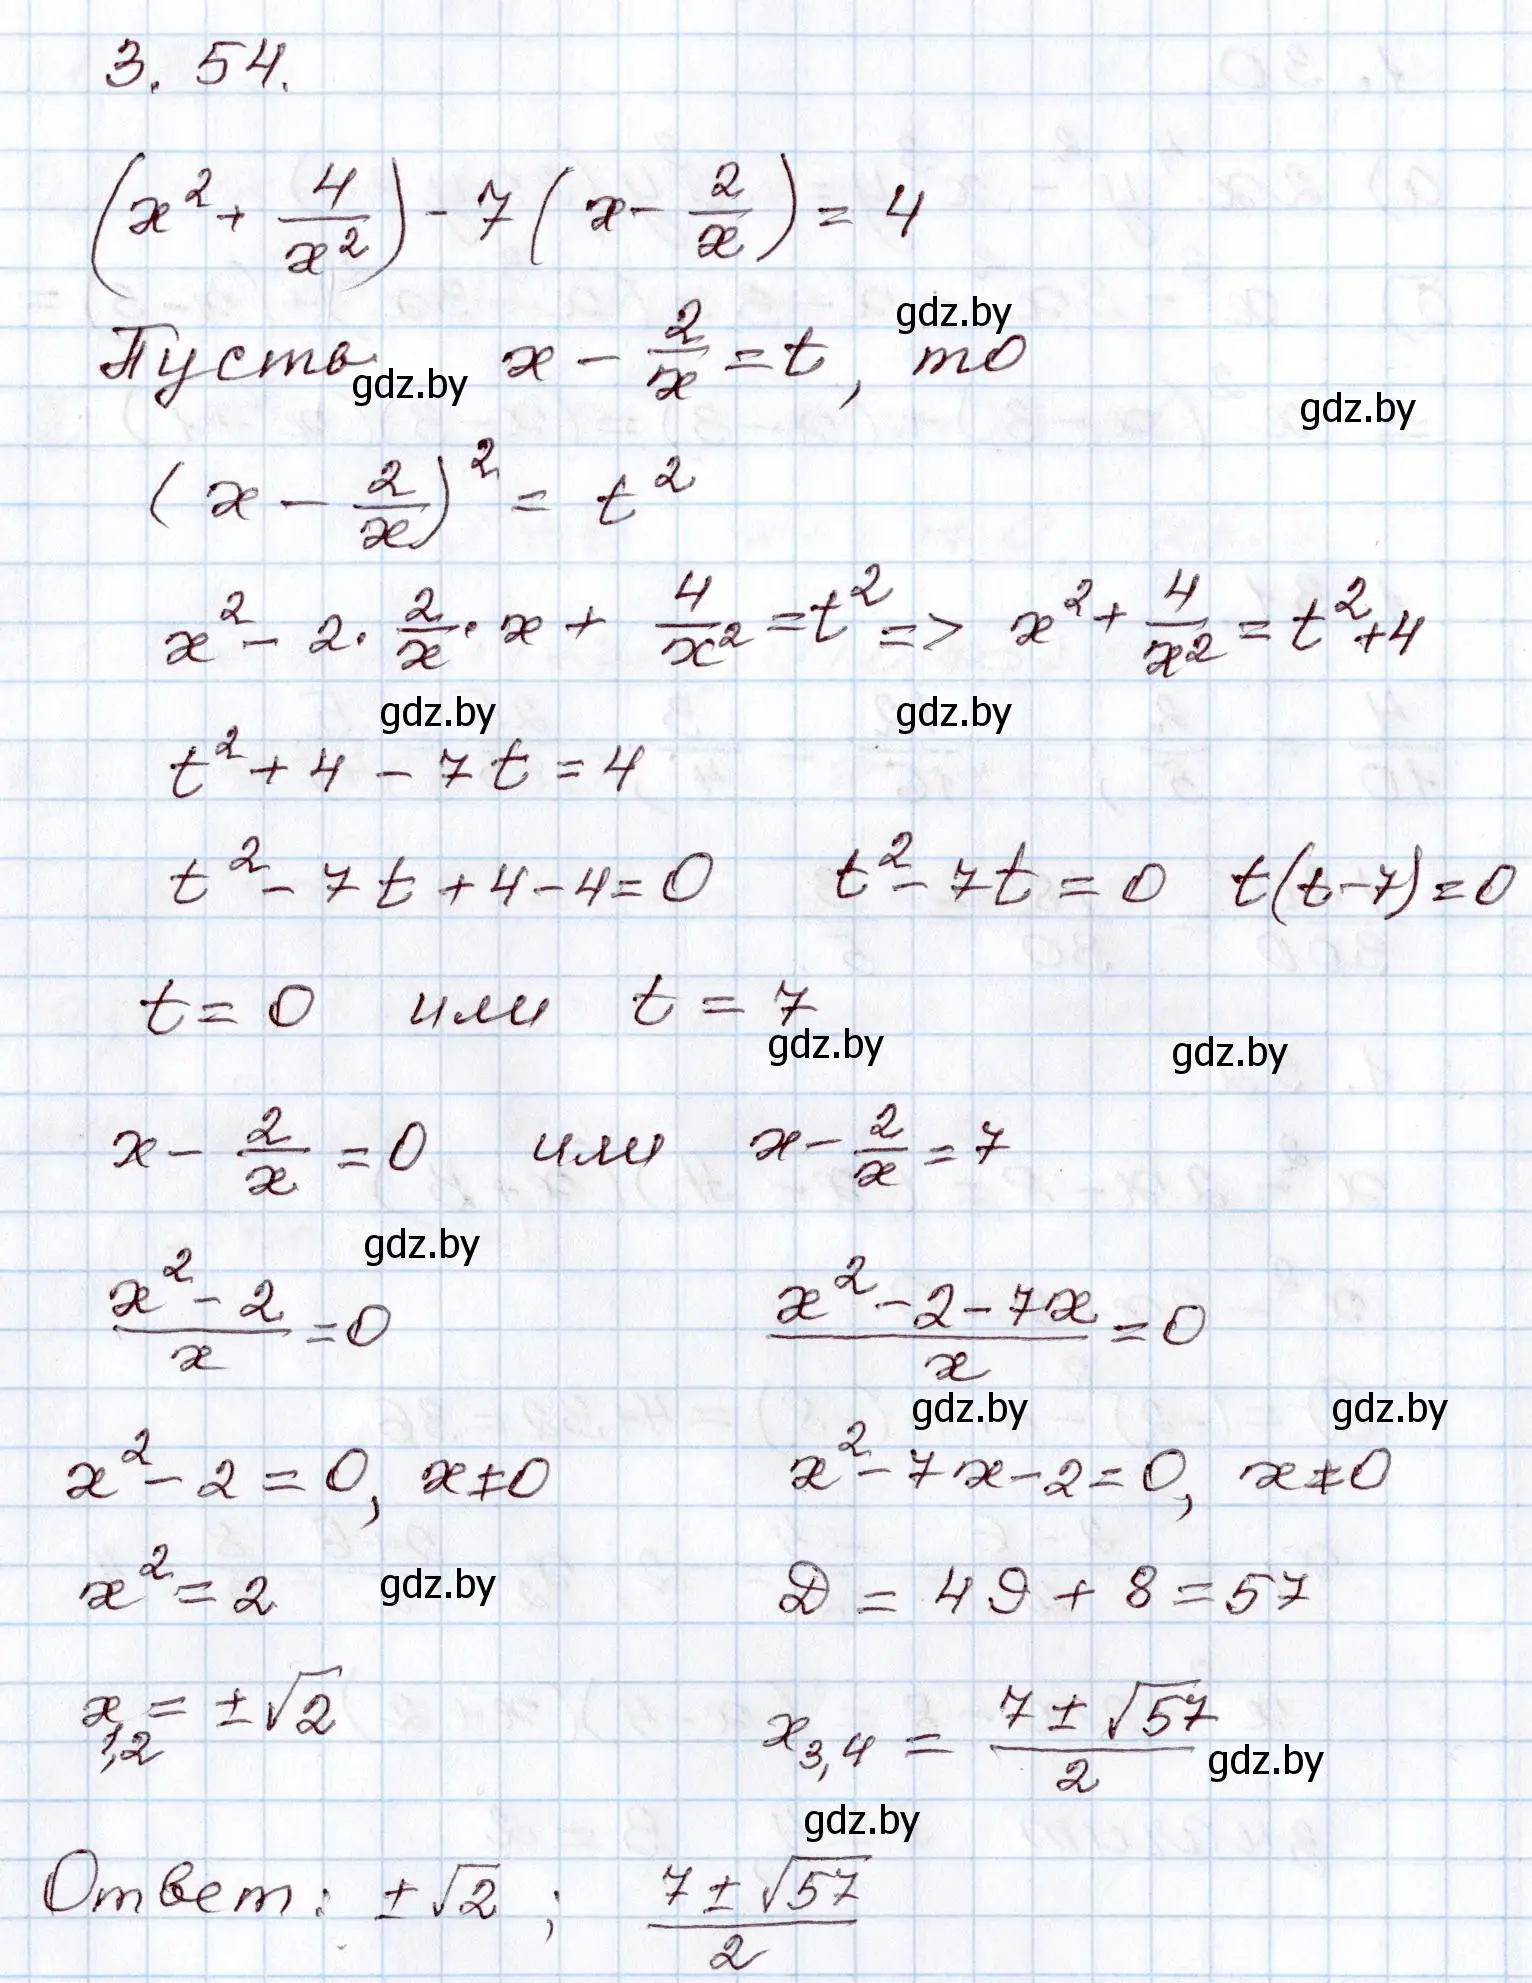 3.54.
(x² + 4/x²) - 7(x - 2/x) = 4
gdz.by
Пусть x - 2/x = t, то
gdz.by
gdz.by
(x - 2/x)² = t²
x² - 2·2/x·x + 4/x² = t² => x² + 4/x² = t² + 4
gdz.by gdz.by
t² + 4 - 7t = 4
t² - 7t + 4 - 4 = 0 t² - 7t = 0 t(t - 7) = 0
t = 0 или t = 7
gdz.by gdz.by
x - 2/x = 0 или x - 2/x = 7
gdz.by
(x² - 2)/x = 0 (x² - 2 - 7x)/x = 0
gdz.by gdz.by
x² - 2 = 0, x ≠ 0 x² - 7x - 2 = 0, x ≠ 0
x² = 2 gdz.by D = 49 + 8 = 57
x₁,₂ = ±√2 x₃,₄ = (7 ± √57)/2
gdz.by
gdz.by
Ответ: ±√2; (7 ± √57)/2